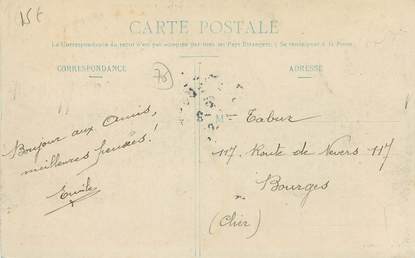 15€
CARTE POSTALE
La Correspondance du recto n'est pas acceptée par tous les Pays Étrangers. (Se renseigner à la Poste)
CORRESPONDANCE
ADRESSE
Bonjour aux Amis,
meilleures pensées!
Emile
M Tabur
117. Route de Nevers 117
Bourges
(Cher)